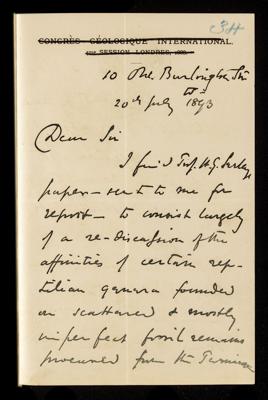 34
CONGRÈS GÉOLOGIQUE INTERNATIONAL.
4me SESSION LONDRES, 1888.
10 Old Burlington St
W.
20th July 1893
Dear Sir
I find Prof. H. G. Seeley's
paper – sent to me for
report – to consist largely
of a re-discussion of the
affinities of certain rep-
tilian genera founded
on scattered & mostly
imperfect fossil remains
procured from the Permian